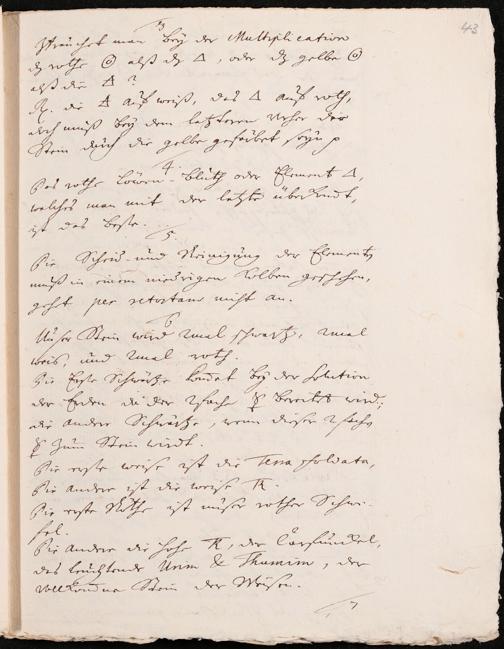 43
3
Brauchet man bey der Multiplication
dz rothe 🜚 alß dz 🜂, oder dz gelbe 🜚
alß die 🜁?
die 🜁 auf weiß, das 🜂 auf roth,
doch muß bey dem letzteren vorher der
Stein durch die gelbe gefärbet seyn
4
Das rothe Löwen-Bluth oder Element 🜂,
welches man mit der letzte überkomt,
ist das beste.
5
Die Scheid- und Reinigung der Elementen
muß in einem niedrigen Kolben geschehen,
geht per retortam nicht an.
6
Unser Stein wird 2mal schwartz, 2mal
weis, und 2mal roth.
Die Erste Schwärtze komt bey der Solution
der Erden da der 2fache ☿ bereitet wird;
die andere Schwärtze, wenn dieser 2fache
☿ zum Stein wird.
Die erste weise ist die Terra foliata,
Die andere ist die weise
Die erste Röthe ist unser rother Schwe-
fel.
Die andere die hohe, der Carfunckel,
das leuchtende Urim & Thumim, der
vollkomne Stein der Weisen.
7